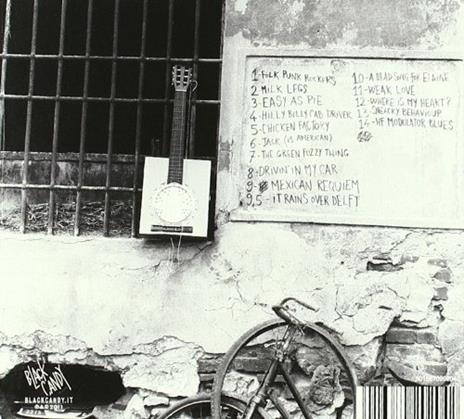 1-FOLK PUNK ROCKERS
2 MILK LEGS
3-EASY AS PIE
4-HILLY BILLY CAB DRIVER
5-CHICKEN FACTORY
6-JACK (IS AMERICAN)
7-THE GREEN FUZZY THING
8-DRIVIN' IN MY CAR
9- MEXICAN REQUIEM
9,5- IT RAINS OVER DELFT
10-A SAD SONG FOR ELAINE
11-WEAK LOVE
12-WHERE IS MY HEART?
13-SNEAKY BEHAVIOUR
14-HF MODULATOR BLUES
BLACK
CANDY
BLACKCANDY.IT
2011